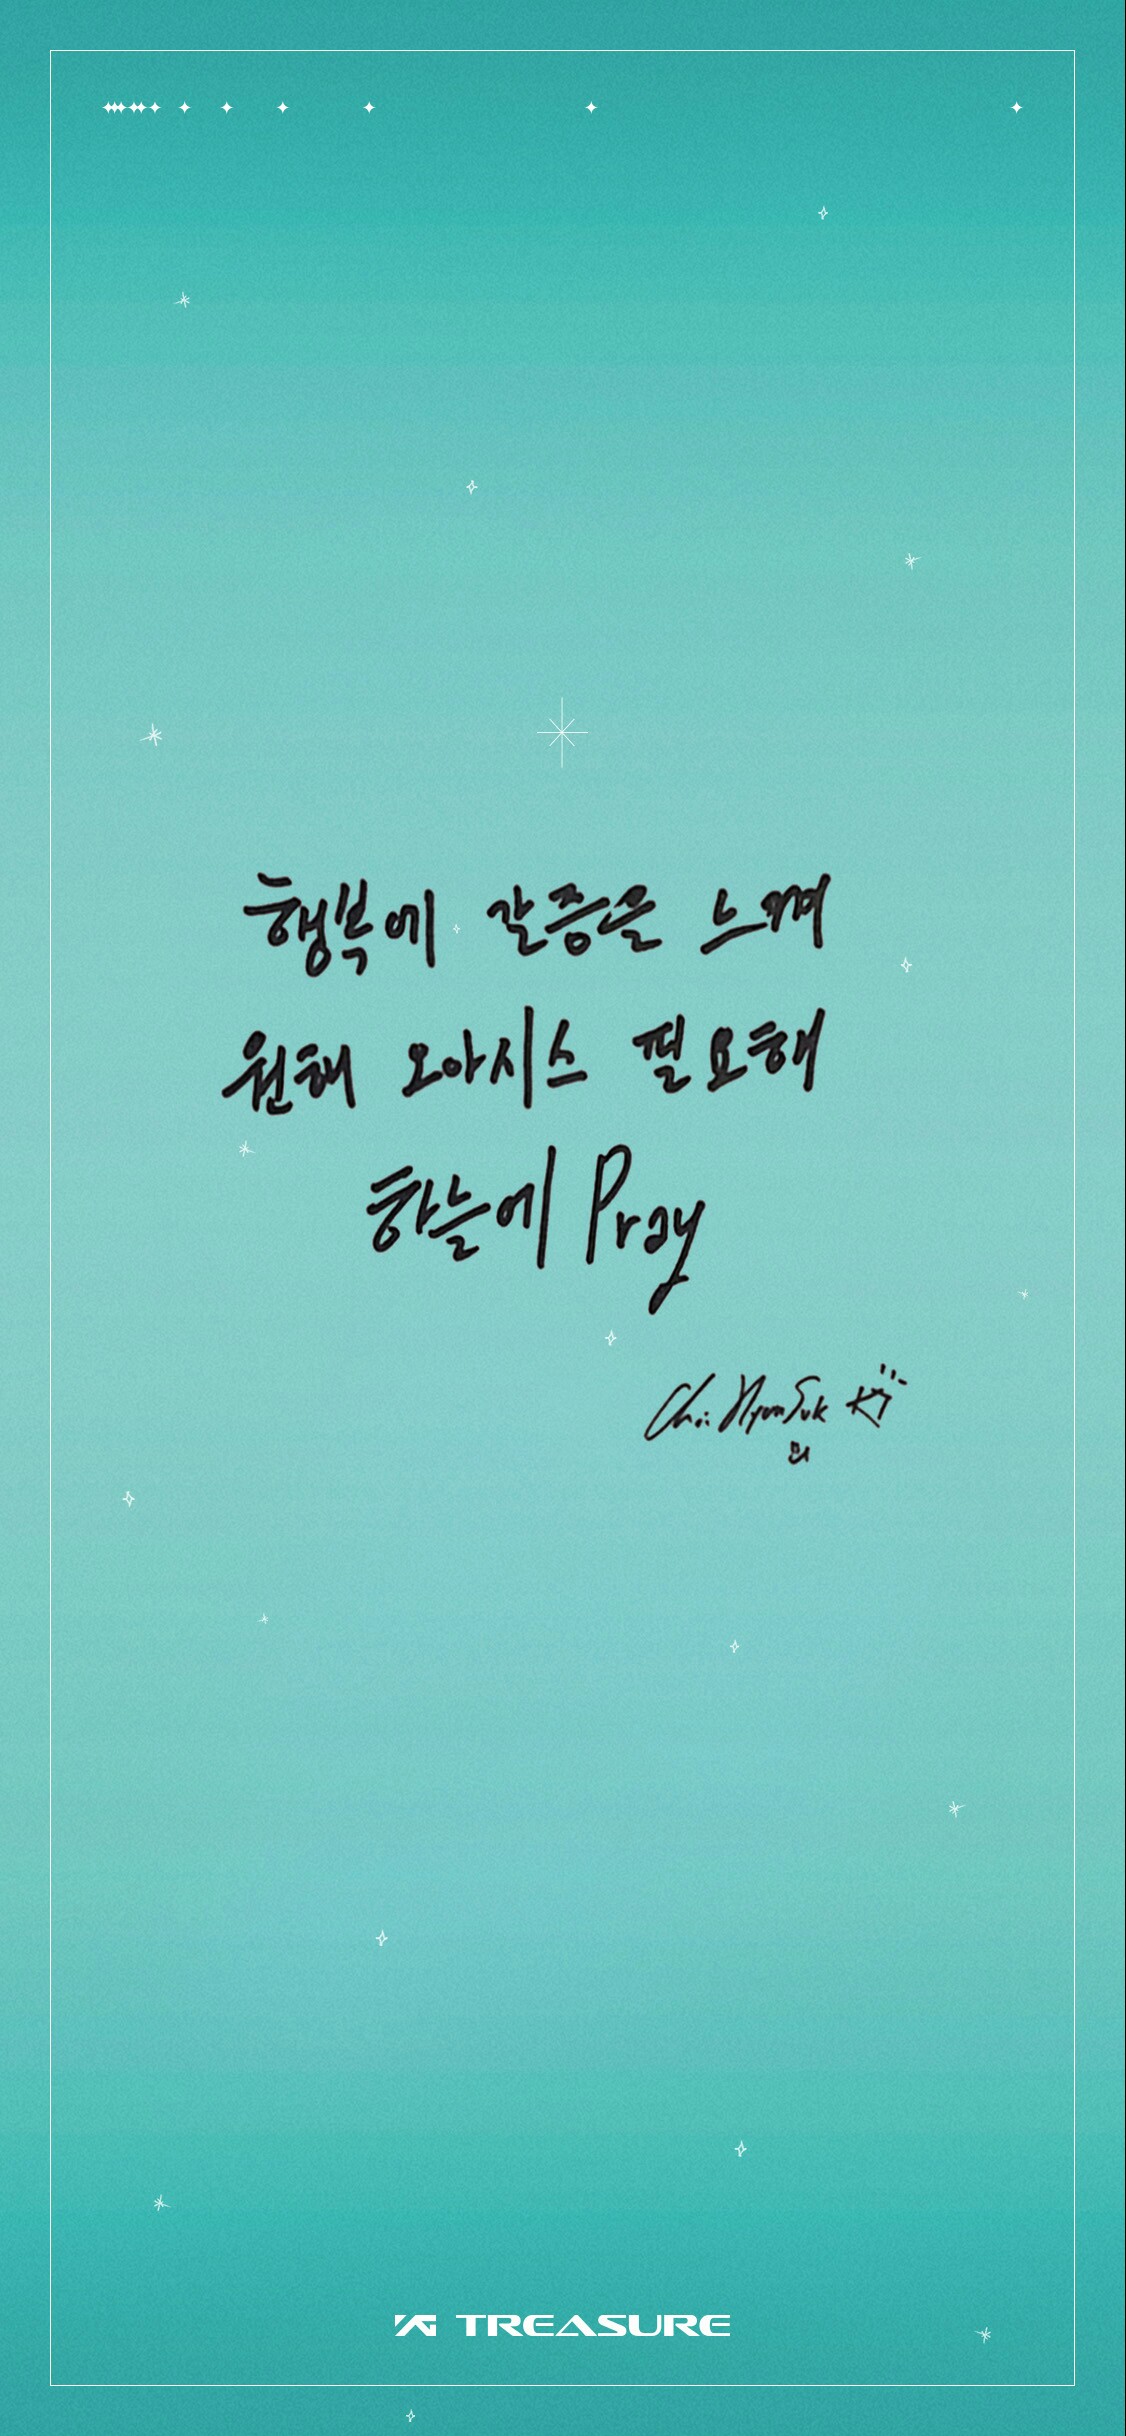 행복에 갈증을 느껴
원해 오아시스 필요해
하늘에 Pray
Choi HyunSuk
YG TREASURE